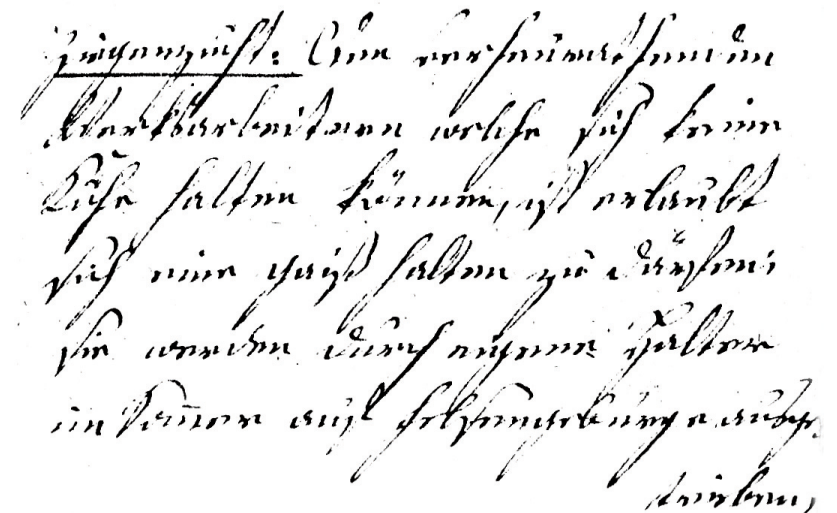 Ziegenzucht: Den verheurathenden
Werksarbeitern welche sich keine
Kühe halten können, ist erlaubt
sich eine gaiß halten zu därfen;
sie werden durch eigene Halter
im Som̅er auf Felsengebürge ausge
trieben,